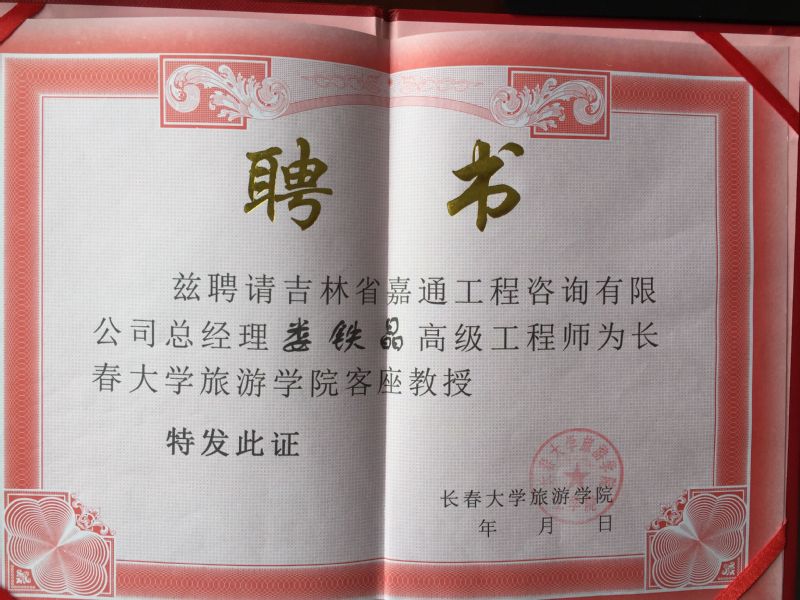 聘书
兹聘请吉林省嘉通工程咨询有限
公司总经理娄铁晶高级工程师为长
春大学旅游学院客座教授
特发此证
长春大学旅游学院
长春大学旅游学院
年 月 日